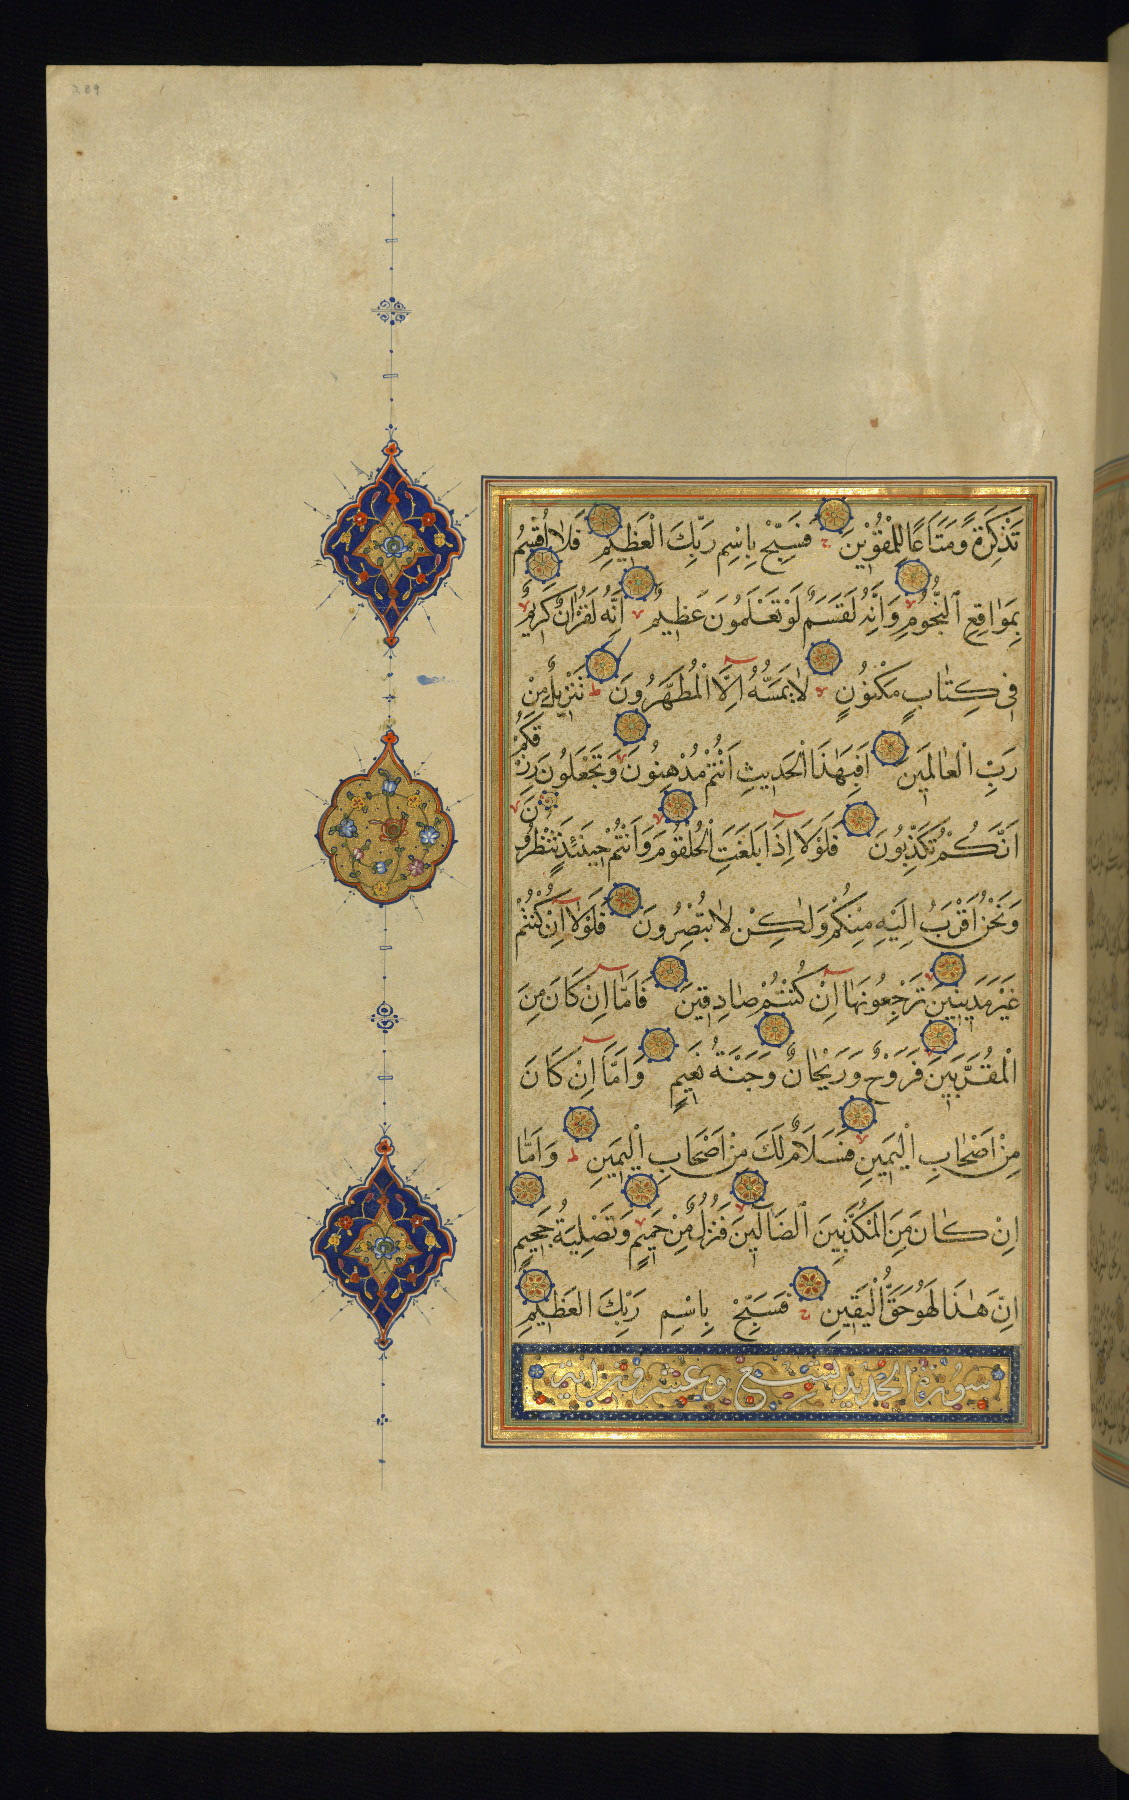 289
تَذْكِرَةً وَمَتَاعًا لِلْمُقْوِينَ فَسَبِّحْ بِاسْمِ رَبِّكَ الْعَظِيمِ فَلَا أُقْسِمُ
بِمَوَاقِعِ النُّجُومِ وَإِنَّهُ لَقَسَمٌ لَوْ تَعْلَمُونَ عَظِيمٌ إِنَّهُ لَقُرْآنٌ كَرِيمٌ
فِي كِتَابٍ مَكْنُونٍ لَا يَمَسُّهُ إِلَّا الْمُطَهَّرُونَ تَنْزِيلٌ مِنْ
رَبِّ الْعَالَمِينَ أَفَبِهَذَا الْحَدِيثِ أَنْتُمْ مُدْهِنُونَ وَتَجْعَلُونَ رِزْقَكُمْ
أَنَّكُمْ تُكَذِّبُونَ فَلَوْلَا إِذَا بَلَغَتِ الْحُلْقُومَ وَأَنْتُمْ حِينَئِذٍ تَنْظُرُونَ
وَنَحْنُ أَقْرَبُ إِلَيْهِ مِنْكُمْ وَلَكِنْ لَا تُبْصِرُونَ فَلَوْلَا إِنْ كُنْتُمْ
غَيْرَ مَدِينِينَ تَرْجِعُونَهَا إِنْ كُنْتُمْ صَادِقِينَ فَأَمَّا إِنْ كَانَ مِنَ
الْمُقَرَّبِينَ فَرَوْحٌ وَرَيْحَانٌ وَجَنَّةُ نَعِيمٍ وَأَمَّا إِنْ كَانَ
مِنْ أَصْحَابِ الْيَمِينِ فَسَلَامٌ لَكَ مِنْ أَصْحَابِ الْيَمِينِ وَأَمَّا
إِنْ كَانَ مِنَ الْمُكَذِّبِينَ الضَّالِّينَ فَنُزُلٌ مِنْ حَمِيمٍ وَتَصْلِيَةُ جَحِيمٍ
إِنَّ هَذَا لَهُوَ حَقُّ الْيَقِينِ فَسَبِّحْ بِاسْمِ رَبِّكَ الْعَظِيمِ
سورة الحديد تسع وعشرون اية